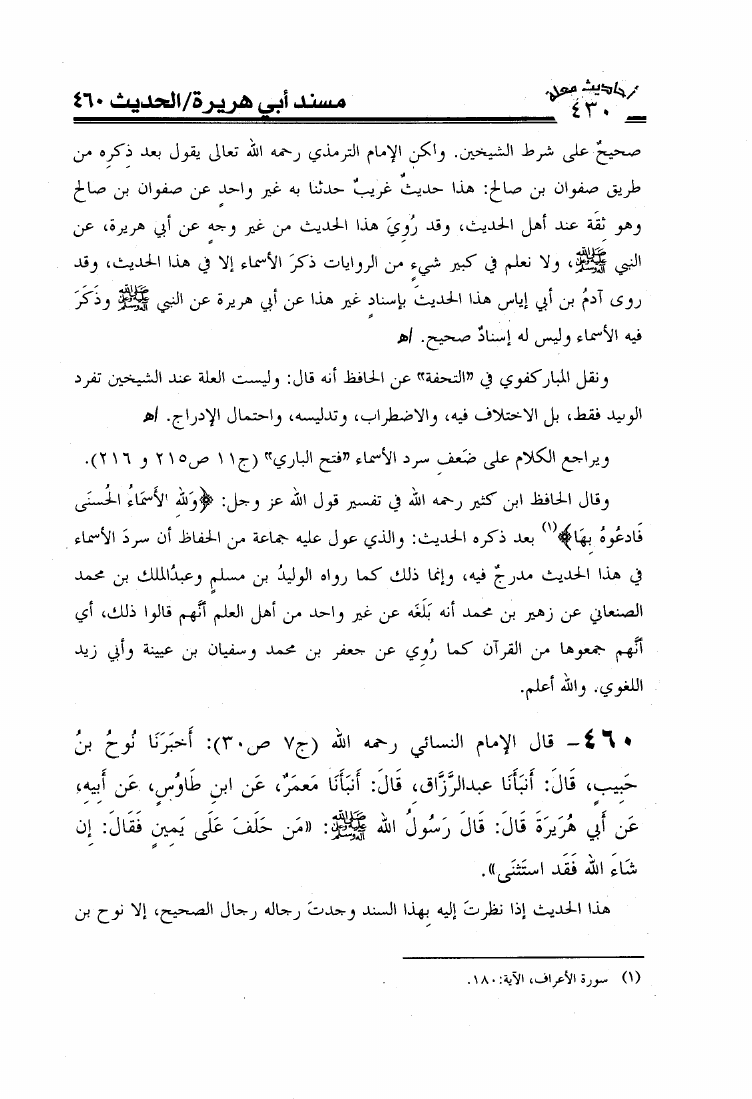 أحاديث معلة
٤٣٠
مسند أبي هريرة/الحديث ٤٦٠
صحيحٌ على شرط الشيخين. ولكن الإمام الترمذي رحمه الله تعالى يقول بعد ذكرِه من
طريق صفوان بن صالح: هذا حديثٌ غريبٌ حدثنا به غير واحدٍ عن صفوان بن صالح
وهو ثقَة عند أهل الحديث، وقد رُوِيَ هذا الحديث من غير وجهٍ عن أبي هريرة، عن
النبي ﷺ، ولا نعلم في كبير شيءٍ من الروايات ذكرَ الأسماء إلا في هذا الحديث، وقد
روى آدمُ بن أبي إياس هذا الحديثَ بإسنادٍ غير هذا عن أبي هريرة عن النبي ﷺ وذَكَرَ
فيه الأسماء وليس له إسنادٌ صحيح. اهـ
ونقل المباركفوي في «التحفة» عن الحافظ أنه قال: وليست العلة عند الشيخين تفرد
الوليد فقط، بل الاختلاف فيه، والاضطراب، وتدليسه، واحتمال الإدراج. اهـ
ويراجع الكلام على ضَعفِ سرد الأسماء «فتح الباري» (ج١١ ص٢١٥ و ٢١٦).
وقال الحافظ ابن كثير رحمه الله في تفسير قول الله عز وجل: ﴿وَلله الأَسمَاءُ الحُسنَى
فَادعُوهُ بِهَا﴾(١) بعد ذكره الحديث: والذي عول عليه جماعة من الحفاظ أن سردَ الأسماء
في هذا الحديث مدرجٌ فيه، وإنما ذلك كما رواه الوليدُ بن مسلمٍ وعبدُالملك بن محمد
الصنعاني عن زهير بن محمد أنه بَلَغَه عن غير واحد من أهل العلم أنَّهم قالوا ذلك، أي
أنَّهم جمعوها من القرآن كما رُوِي عن جعفر بن محمد وسفيان بن عيينة وأبي زيد
اللغوي. والله أعلم.
٤٦٠- قال الإمام النسائي رحمه الله (ج٧ ص٣٠): أَخبَرَنَا نُوحُ بنُ
حَبِيبٍ، قَالَ: أَنبَأَنَا عبدالرَّزَّاق، قَالَ: أَنبَأَنَا مَعمَرٌ، عَن ابنِ طَاوُسٍ، عَن أَبِيهِ،
عَن أَبي هُرَيرَةَ قَالَ: قَالَ رَسُولُ الله ﷺ: «مَن حَلَفَ عَلَى يَمِينٍ فَقَالَ: إِن
شَاءَ اللهُ فَقَد استَثنَى».
هذا الحديث إذا نظرتَ إليه بِهذا السند وجدتَ رجاله رجال الصحيح، إلا نوح بن
(١) سورة الأعراف، الآية:١٨٠.